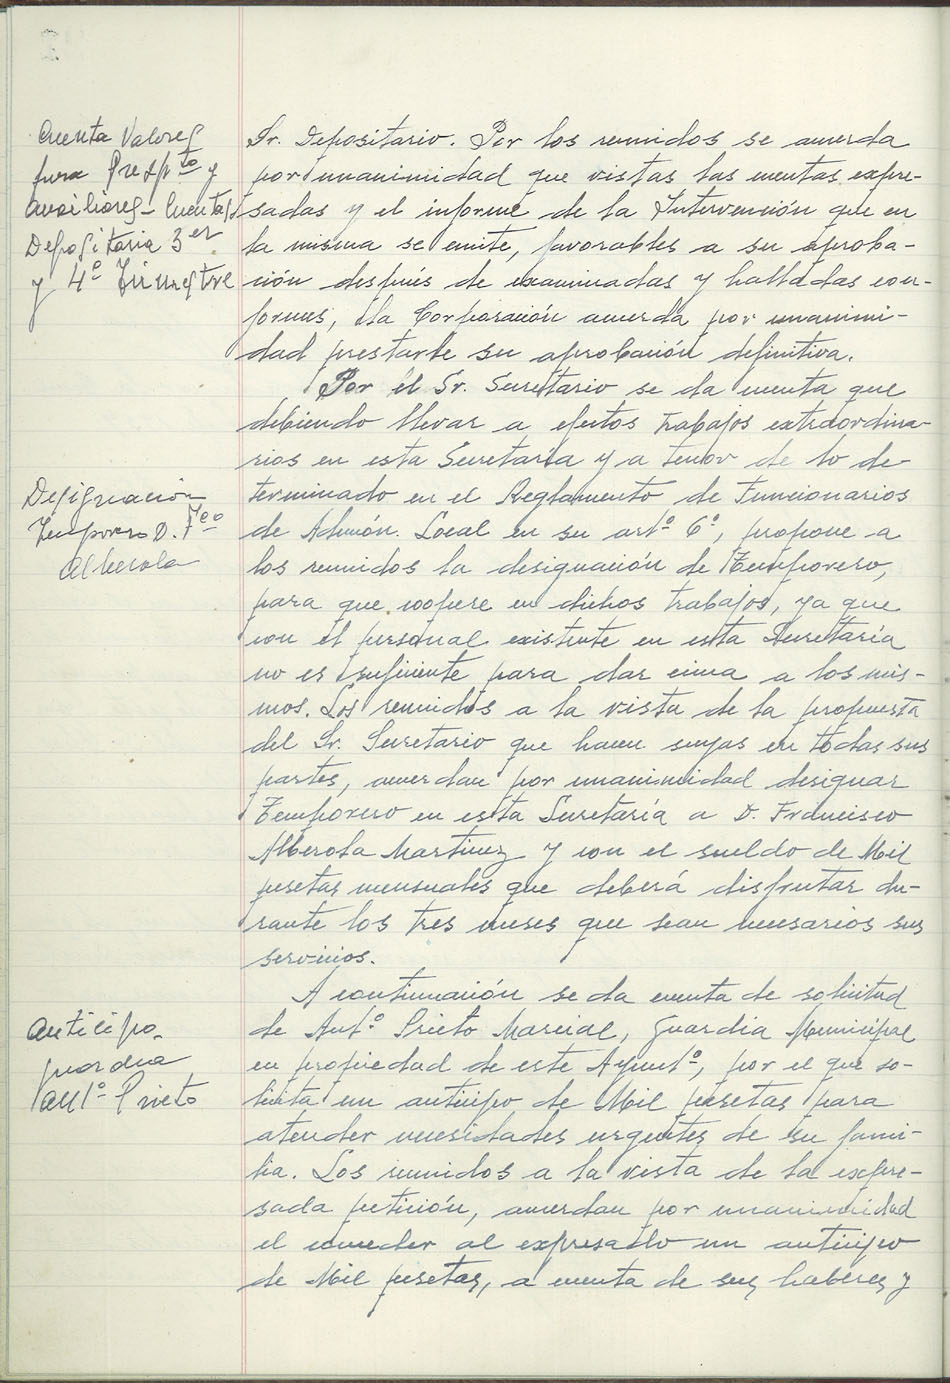 Cuenta Valores
fuera Presptº y
Auxiliares - Cuentas
Depositaria 3er
y 4º Trimestre
Sr. Depositario. Por los reunidos se acuerda
por unanimidad que vistas las cuentas expre-
sadas y el informe de la Intervención que en
la misma se emite, favorables a su aproba-
ción después de examinadas y halladas con-
formes, la Corporación acuerda por unanimi-
dad prestarle su aprobación definitiva.
Por el Sr. Secretario se da cuenta que
debiendo llevar a efectos trabajos extraordina-
rios en esta Secretaría y a tenor de lo de-
Designación
Temporero D. Fcº
Alberola
terminado en el Reglamento de Funcionarios
de Admón. Local en su artº 6º, propone a
los reunidos la designación de Temporero,
para que coopere en dichos trabajos, ya que
con el personal existente en esta Secretaría
no es suficiente para dar cima a los mis-
mos. Los reunidos a la vista de la propuesta
del Sr. Secretario que hacen suyas en todas sus
partes, acuerdan por unanimidad designar
Temporero en esta Secretaría a D. Francisco
Alberola Martinez y con el sueldo de Mil
pesetas mensuales que deberá disfrutar du-
rante los tres meses que sean necesarios sus
servicios.
A continuación se da cuenta de solicitud
Anticipo
guardia
Antº Prieto
de Antº Prieto Marcial, Guardia Municipal
en propiedad de este Ayuntº, por el que so-
licita un anticipo de Mil pesetas para
atender necesidades urgentes de su fami-
lia. Los reunidos a la vista de la expre-
sada petición, acuerdan por unanimidad
el conceder al expresado un anticipo
de Mil pesetas, a cuenta de sus haberes y